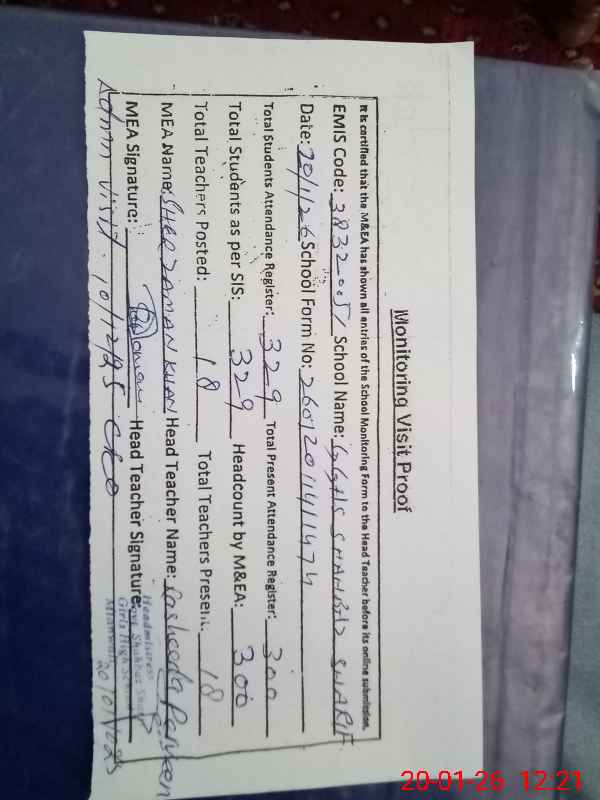 Monitoring Visit Proof
It is certified that the M&EA has shown all entries of the School Monitoring Form to the Head Teacher before its online submission.
EMIS Code: 38320051 School Name: GGHS SHAHBAZ SHARIF
Date: 20/1/26 School Form No: 260120114111474
Total Students Attendance Register: 329 Total Present Attendance Register: 300
Total Students as per SIS: 329 Headcount by M&EA: 300
Total Teachers Posted: 18 Total Teachers Present: 18
MEA Name: SHER ZAMAN KHAN Head Teacher Name: Rasheeda Parveen
MEA Signature: Head Teacher Signature:
Admn visit. 10/12/25 CEO
Headmistress
Govt. Shahbaz Sharif
Girls High School
Mianwali
20-01-26 12:21